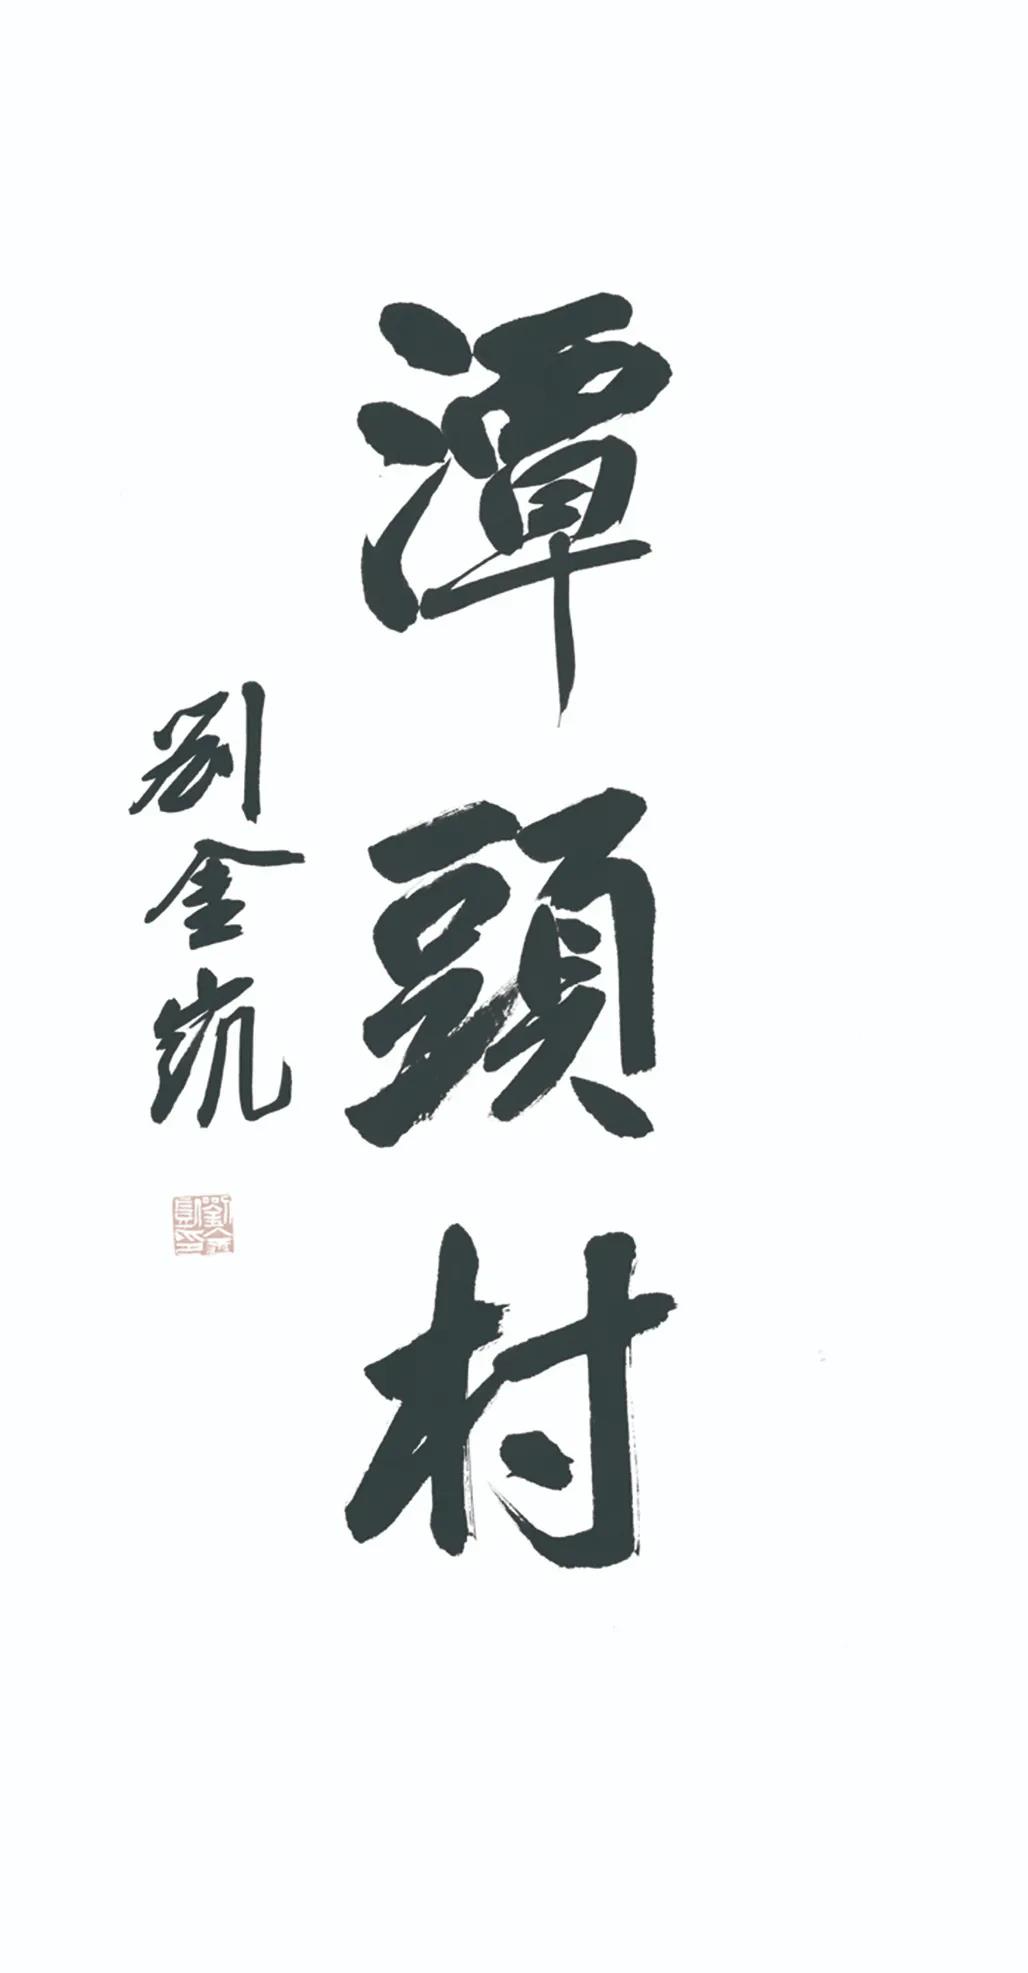 潭頭村
劉金凱